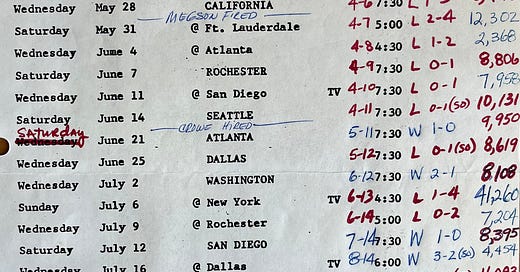 Wednesday May 28 CALIFORNIA 4-6 7:30 L
MEGSON FIRED
Saturday May 31 @ Ft. Lauderdale 4-7 5:00 L 2-4 12,302
Wednesday June 4 @ Atlanta 4-8 4:30 L 1-2 2,368
Saturday June 7 ROCHESTER 4-9 7:30 L 0-1 8,806
Wednesday June 11 @ San Diego TV 4-10 7:30 L 0-1 7,958
Saturday June 14 SEATTLE 4-11 7:30 L 0-1(SO) 10,131
CROWE HIRED
SATURDAY
Wednesday June 21 ATLANTA 5-11 7:30 W 1-0 9,950
Wednesday June 25 DALLAS 5-12 7:30 L 0-1(SO) 8,619
Wednesday July 2 WASHINGTON 6-12 7:30 W 2-1 8,108
Sunday July 6 @ New York TV 6-13 4:30 L 1-4 41,260
Wednesday July 9 @ Rochester 6-14 5:00 L 0-2 7,204
Saturday July 12 SAN DIEGO 7-14 7:30 W 1-0 8,395
Wednesday July 16 @ Dallas TV 8-14 6:00 W 3-2(SO) 4,454